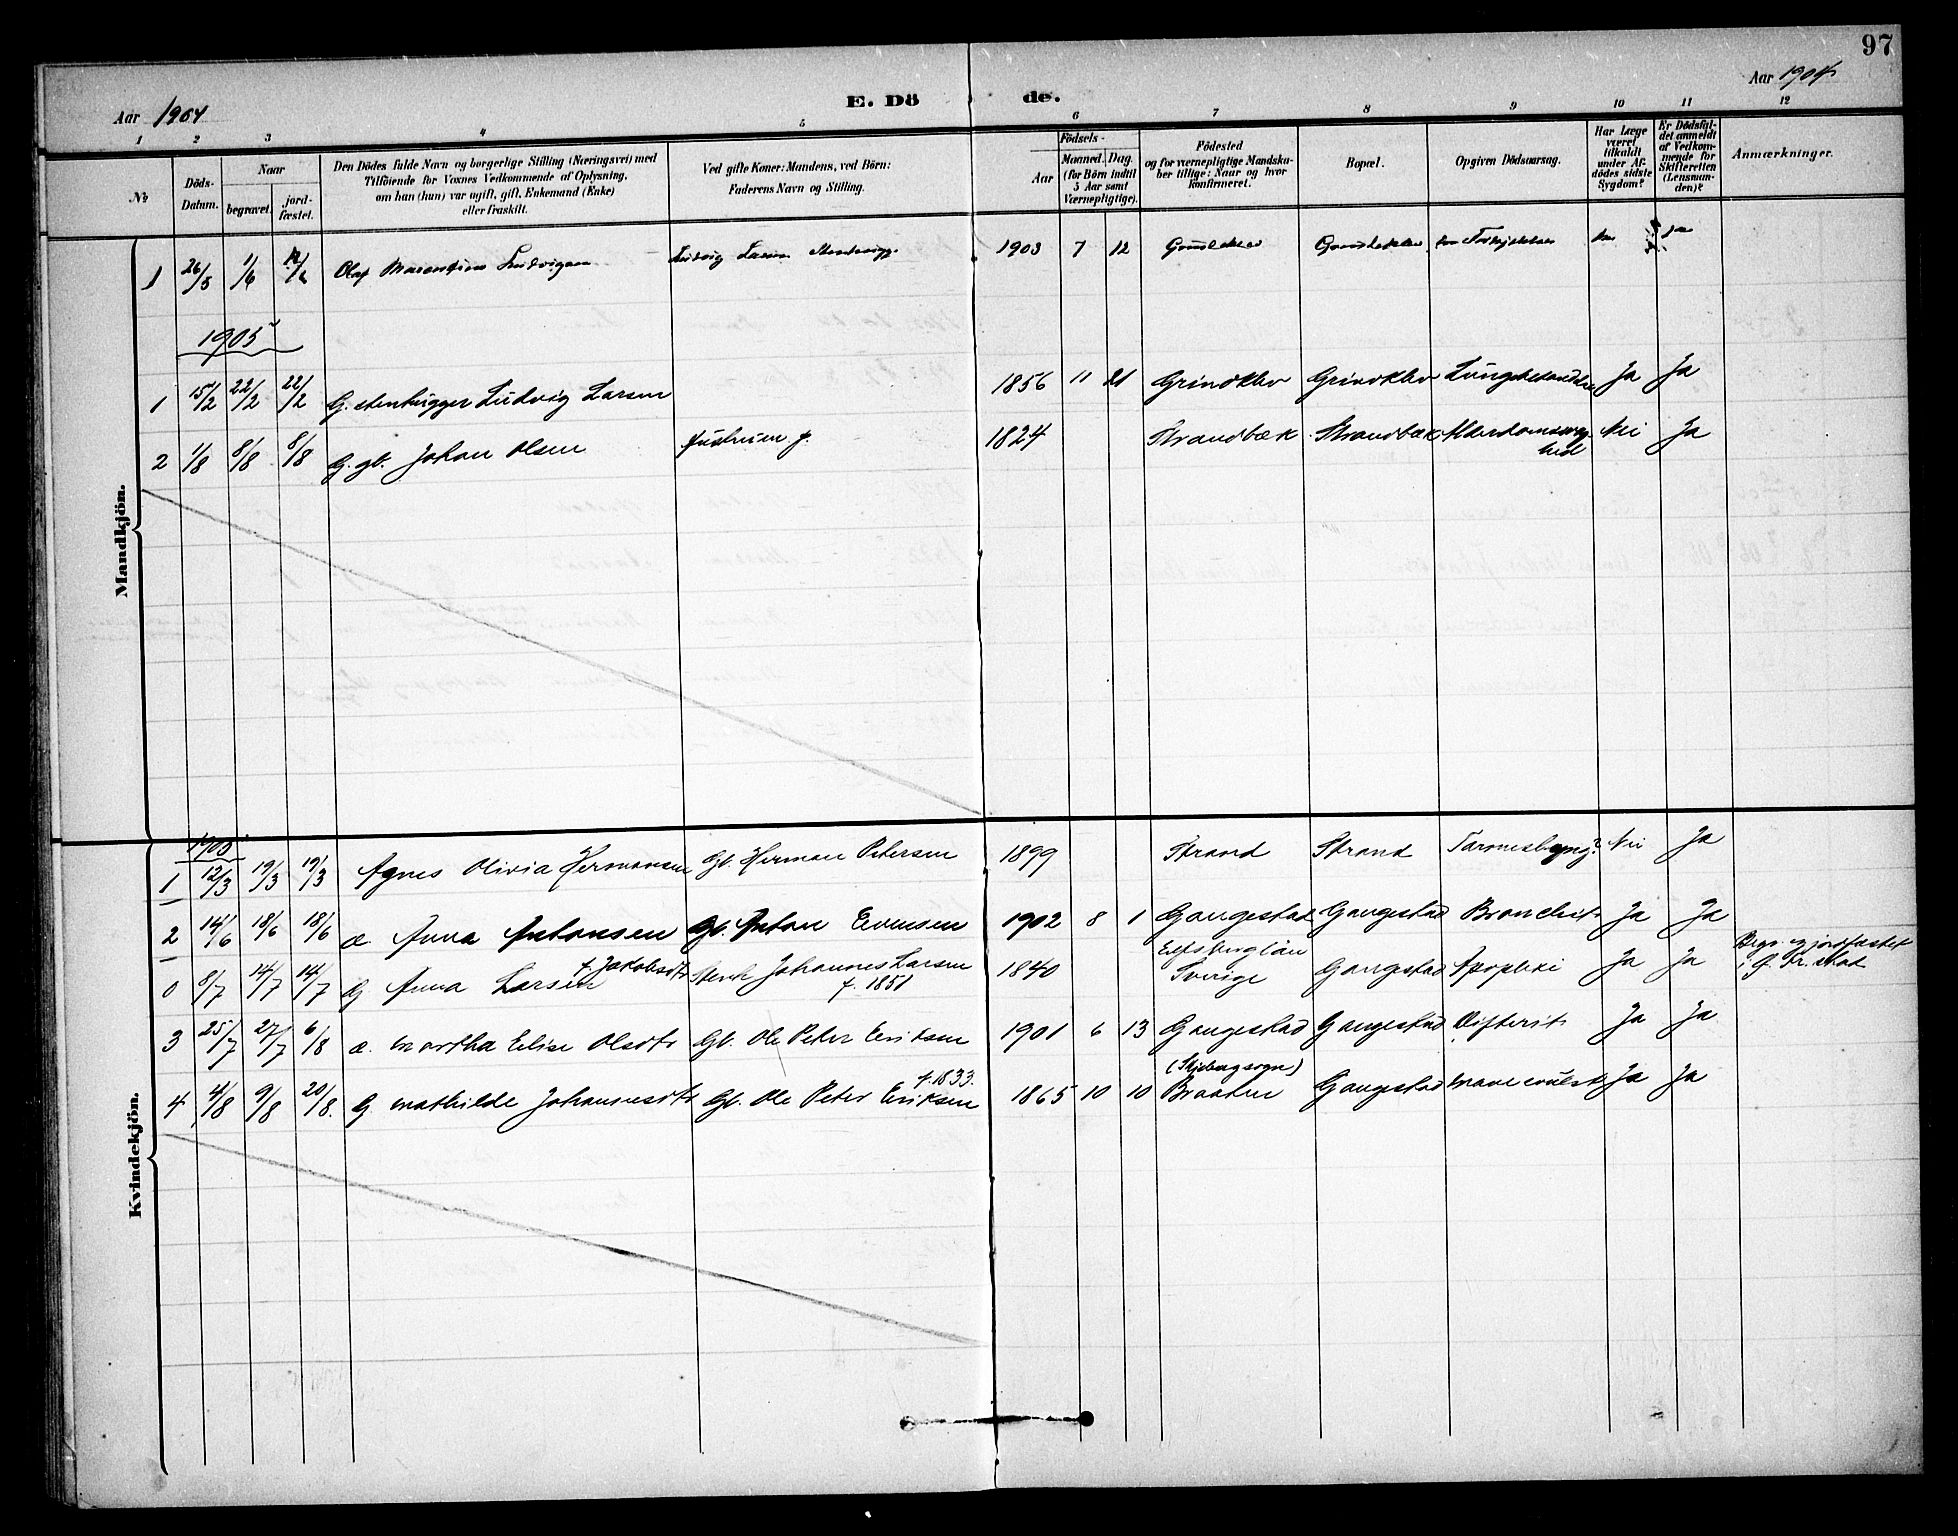 97
Aar 1904
E. Dö de.
Aar 1904
1 2 3 4 5 6 7 8 9 10 11 12
No
Döds-Datum.
Naar
begravet. jord-fæstet.
Den Dödes fulde Navn og borgerlige Stilling (Næringsvei) med
Tilföiende for Voxnes Vedkommende af Oplysning,
om han (hun) var ugift, gift, Enkemand (Enke)
eller fraskilt.
Ved gifte Koner: Mandens, ved Börn:
Faderens Navn og Stilling.
Födsels-
Aar
Maaned. Dag.
(for Börn indtil
5 Aar samt
Værnepligtige).
Födested
og for værnepligtige Mandska-
ber tillige: Naar og hvor
konfirmeret.
Bopæl.
Opgiven Dödsaarsag.
Har Læge
været
tilkaldt
under Af-
dödes sidste
Sygdom?
Er Dödsfal-
det anmeldt
af Vedkom-
mende for
Skifteretten
(Lensman-
den)?
Anmærkninger.
Mandkjön.
1 26/5 1/6 Olaf Ludvigsen Ludvig Larsen 1903 7 12
1905
1 15/2 22/2 22/2 G. stenhugger Ludvig Larsen 1856 11 21 Grindklev Grindklev Lungebetændelse Ja Ja
2 1/8 8/8 8/8 G. gb. Johan Olsen 1824 Strandbæk Strandbæk Alderdomssvag-
hed Nei Ja
Kvindekjön.
1905
1 12/3 19/3 19/3 Agnes Olivia Hermansen Gb. Herman Petersen 1899 Strand Strand Nei Ja
2 14/6 18/6 18/6 æ. Anna Antonsen Gb. Anton Evensen 1902 8 1 Gangestad Gangestad Bronchit Ja Ja
0 8/7 14/7 14/7 G Anna Larsen f. Jakobsdtr Stenh. Johannes Larsen f. 1851 1840 Elfsborglän
Sverige Gangestad Apoplexi Ja Ja Begr. og jordfæstet
i G. Fr.stad
3 25/7 27/7 6/8 æ. Martha Elise Olsdtr Gb. Ole Peter Eriksen 1901 6 13 Gangestad Gangestad Difterit Ja Ja
4 4/8 9/8 20/8. G Mathilde Johannesdtr Gb. Ole Peter Eriksen f. 1833. 1865 10 10 (Skjebergsogn)
Braaten Gangestad Ja Ja